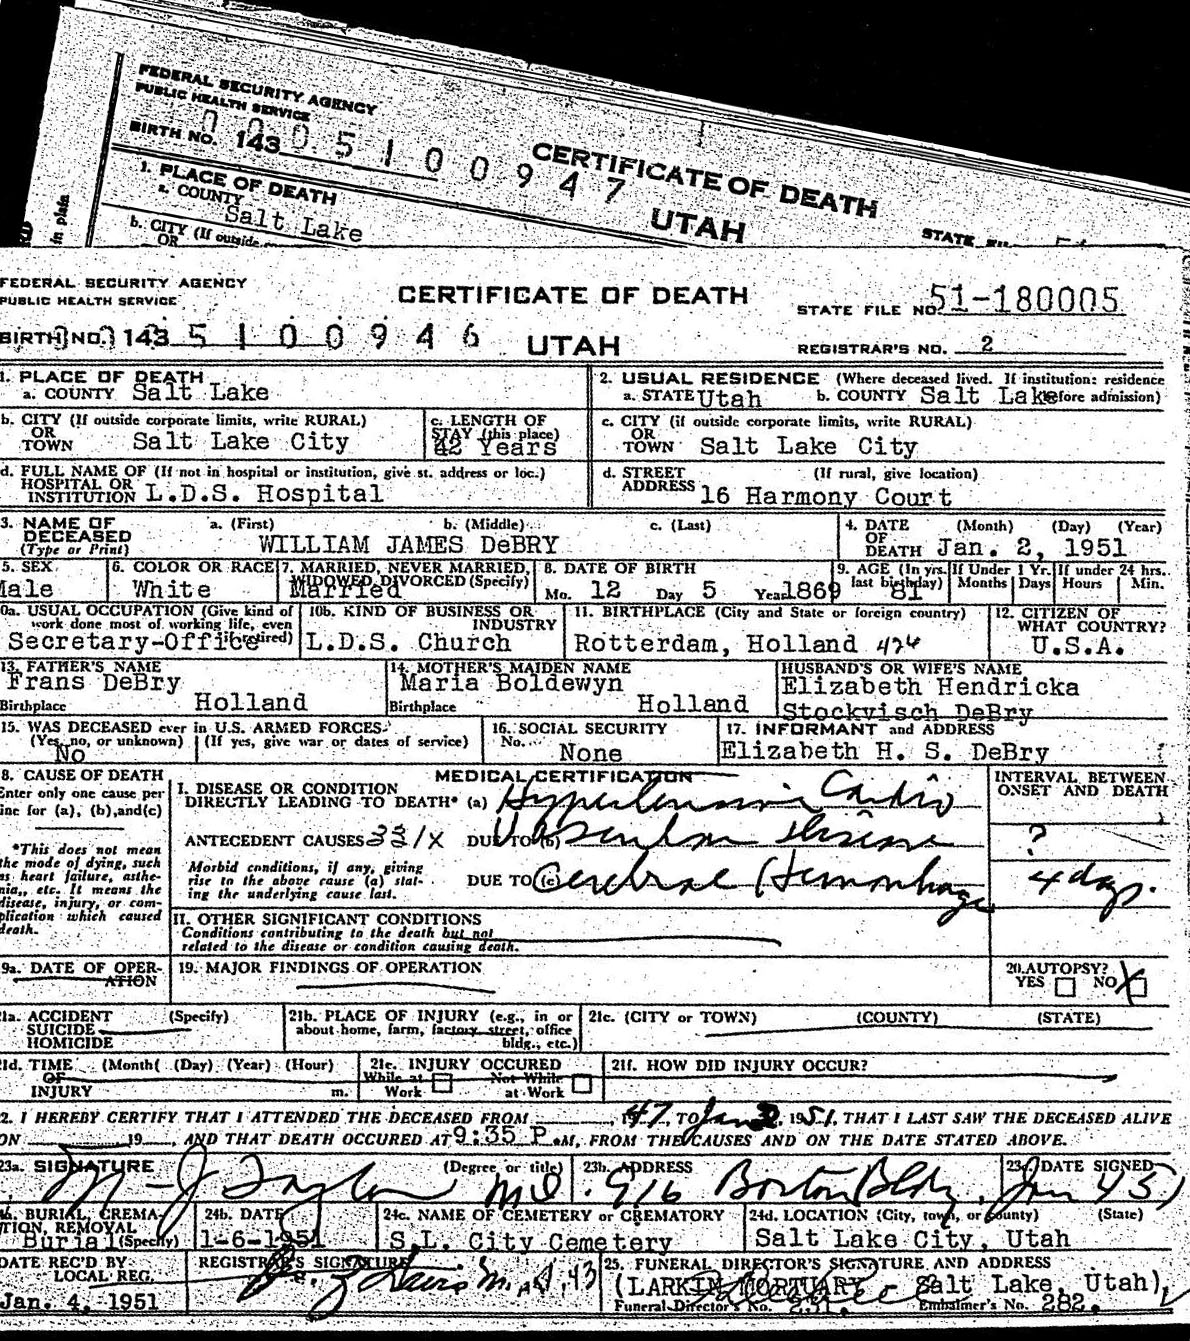 FEDERAL SECURITY AGENCY
PUBLIC HEALTH SERVICE
BIRTH NO. 143 5 1 0 0 9 4 7
CERTIFICATE OF DEATH
UTAH
1. PLACE OF DEATH
a. COUNTY Salt Lake
b. CITY (If outside
OR
in plain
FEDERAL SECURITY AGENCY
PUBLIC HEALTH SERVICE
CERTIFICATE OF DEATH
STATE FILE NO. 51-180005
BIRTH NO. 143 5 1 0 0 9 4 6 UTAH
REGISTRAR'S NO. 2
1. PLACE OF DEATH
a. COUNTY Salt Lake
2. USUAL RESIDENCE (Where deceased lived. If institution: residence
a. STATE Utah b. COUNTY Salt Lake before admission)
b. CITY (If outside corporate limits, write RURAL)
OR
TOWN Salt Lake City
c. LENGTH OF
STAY (this place)
42 Years
c. CITY (if outside corporate limits, write RURAL)
OR
TOWN Salt Lake City
d. FULL NAME OF (If not in hospital or institution, give st. address or loc.)
HOSPITAL OR
INSTITUTION L.D.S. Hospital
d. STREET (If rural, give location)
ADDRESS 16 Harmony Court
3. NAME OF a. (First) b. (Middle) c. (Last)
DECEASED
(Type or Print) WILLIAM JAMES DeBRY
4. DATE (Month) (Day) (Year)
OF
DEATH Jan. 2, 1951
5. SEX
Male
6. COLOR OR RACE
White
7. MARRIED, NEVER MARRIED,
WIDOWED DIVORCED (Specify)
Married
8. DATE OF BIRTH
Mo. 12 Day 5 Year 1869
9. AGE (In yrs.
last birthday)
81
If Under 1 Yr.
Months Days
If under 24 hrs.
Hours Min.
0a. USUAL OCCUPATION (Give kind of
work done most of working life, even
if retired)
Secretary-Office
10b. KIND OF BUSINESS OR
INDUSTRY
L.D.S. Church
11. BIRTHPLACE (City and State or foreign country)
Rotterdam, Holland 426
12. CITIZEN OF
WHAT COUNTRY?
U.S.A.
13. FATHER'S NAME
Frans DeBry
Birthplace Holland
14. MOTHER'S MAIDEN NAME
Maria Boldewyn
Birthplace Holland
HUSBAND'S OR WIFE'S NAME
Elizabeth Hendricka
Stockvisch DeBry
15. WAS DECEASED ever in U.S. ARMED FORCES
(Yes, no, or unknown) (If yes, give war or dates of service)
No
16. SOCIAL SECURITY
No. None
17. INFORMANT and ADDRESS
Elizabeth H. S. DeBry
8. CAUSE OF DEATH
Enter only one cause per
line for (a), (b),and(c)
*This does not mean
the mode of dying, such
as heart failure, asthe-
nia, etc. It means the
disease, injury, or com-
plication which caused
death.
MEDICAL CERTIFICATION
INTERVAL BETWEEN
ONSET AND DEATH
I. DISEASE OR CONDITION
DIRECTLY LEADING TO DEATH* (a) Hypertensive Cardio
ANTECEDENT CAUSES 331X DUE TO (b) Vascular disease ?
Morbid conditions, if any, giving
rise to the above cause (a) stat-
ing the underlying cause last.
DUE TO (c) Cerebral Hemorrhage 4 days.
II. OTHER SIGNIFICANT CONDITIONS
Conditions contributing to the death but not
related to the disease or condition causing death.
9a. DATE OF OPER-
ATION
19. MAJOR FINDINGS OF OPERATION
20. AUTOPSY?
YES NO X
21a. ACCIDENT (Specify)
SUICIDE
HOMICIDE
21b. PLACE OF INJURY (e.g., in or
about home, farm, factory, street, office
bldg., etc.)
21c. (CITY or TOWN) (COUNTY) (STATE)
21d. TIME (Month( (Day) (Year) (Hour)
OF
INJURY m.
21e. INJURY OCCURED
While at Not While
Work at Work
21f. HOW DID INJURY OCCUR?
2. I HEREBY CERTIFY THAT I ATTENDED THE DECEASED FROM 1947, TO Jan 2, 1951, THAT I LAST SAW THE DECEASED ALIVE
ON 19 , AND THAT DEATH OCCURED AT 9:35 P.M, FROM THE CAUSES AND ON THE DATE STATED ABOVE.
23a. SIGNATURE (Degree or title)
J Taylor MD.
23b. ADDRESS
916 Boston Bldg.
23c. DATE SIGNED
Jan 4 51
BURIAL, CREMA-
TION, REMOVAL
Burial (Specify)
24b. DATE
1-6-1951
24c. NAME OF CEMETERY or CREMATORY
S.L. City Cemetery
24d. LOCATION (City, town, or county) (State)
Salt Lake City, Utah
DATE REC'D BY
LOCAL REG.
Jan. 4, 1951
REGISTRAR'S SIGNATURE
25. FUNERAL DIRECTOR'S SIGNATURE AND ADDRESS
(LARKIN MORTUARY Salt Lake, Utah)
Funeral Director's No. 231. Embalmer's No. 282.